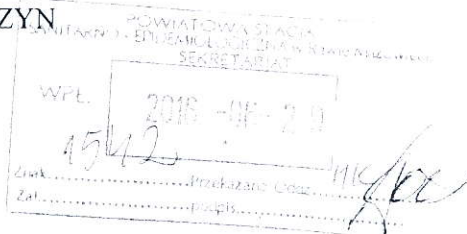 ZYN
POWIATOWA STACJA
SANITARNO - EPIDEMIOLOGICZNA w
SEKRETARIAT
WPŁ. 2016 -06- 29
1542
Znak Przekazano Dnia
Zał. podpis